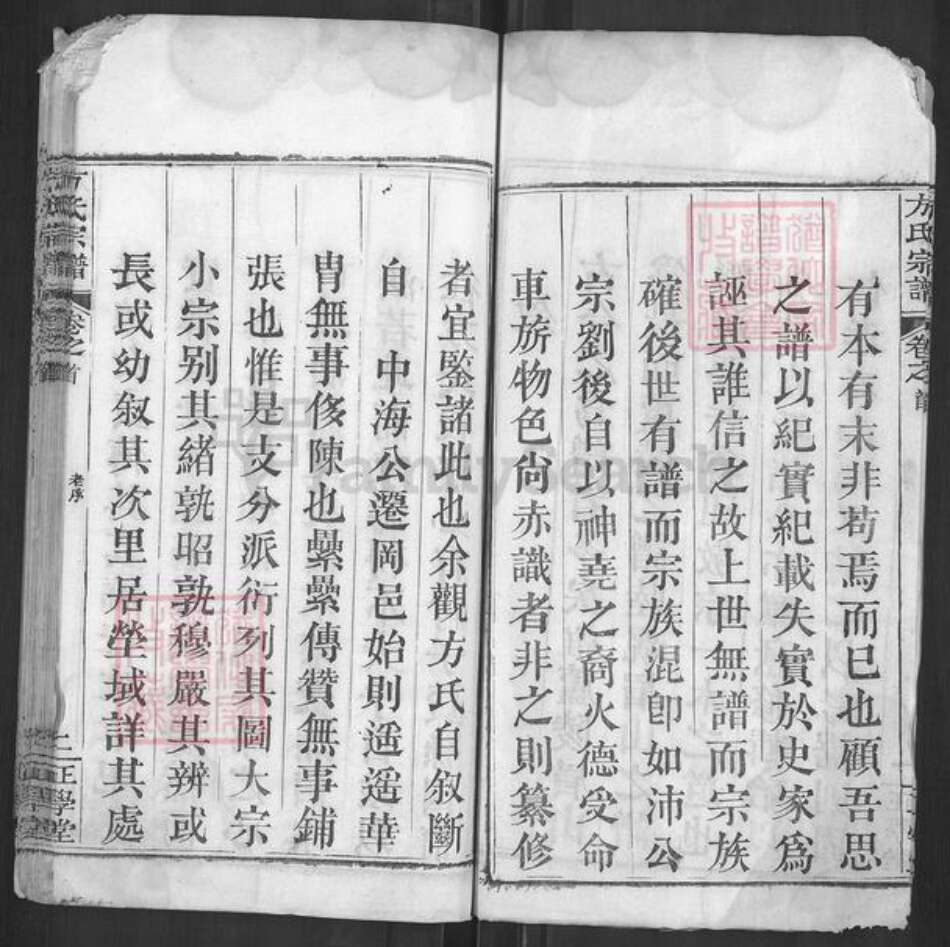 方氏宗譜
卷之首
有本有末非苟焉而已也顧吾思
之譜以紀實紀載失實於史家為
誣其誰信之故上世無譜而宗族
確後世有譜而宗族混即如沛公
宗劉後自以神堯之裔火德受命
車旂物色尚赤識者非之則纂修
者宜鑒諸此也余觀方氏自叙斷
自 中海公遷岡邑始則遥遥華
冑無事侈陳也纍纍傳贊無事鋪
張也惟是支分派衍列其圖大宗
小宗别其緒孰昭孰穆嚴其辨或
長或幼叙其次里居塋域詳其處
方氏宗譜
卷之首
老序
二
正學堂
FamilySearch